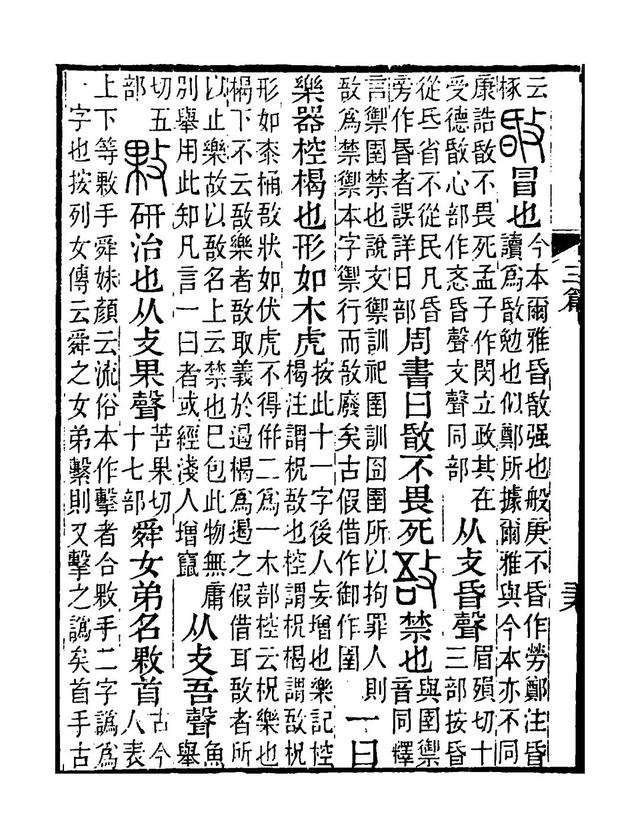 云椓敯冒也今本爾雅昬敯强也般庚不昬作勞鄭注昬讀爲敯勉也似鄭所據爾雅與今本亦不同
康誥敯不畏死孟子作閔立政其在受德敯心部作忞昬聲文聲同部从攴昏聲眉殞切十三部按昏
從氐省不從民凡昬旁作昬者誤詳日部周書曰敯不畏死敔禁也與圉禦音同釋
言禦圉禁也說文禦訓祀圉訓囹圉所以拘罪人則敔爲禁禦本字禦行而敔廢矣古假借作御作圉一曰
樂器椌楬也形如木虎按此十一字後人妄增也樂記椌楬注謂柷敔也椌謂柷楬謂敔柷
形如桼桶敔狀如伏虎不得併二爲一木部椌云柷樂也楬下不云敔樂者敔取義於遏楬爲遏之假借耳敔者所
以止樂故以敔名上云禁也巳包此物無庸別舉用此知凡言一曰者或經淺人增竄从攴吾聲魚舉
切五部敤研治也从攴果聲苦果切十七部舜女弟名敤首古今人表
上下等敤手舜妹顏云流俗本作擊者合敤手二字譌爲一字也按列女傳云舜之女弟繫則又擊之譌矣首手古
三篇